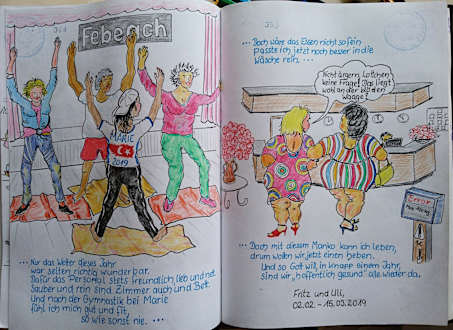 Febeach
MARIE
2019
... Nur das Wetter dieses Jahr
war selten richtig wunderbar.
Dafür das Personal stets freundlich lieb und nett
Sauber und rein sind Zimmer auch und Bett.
Und nach der Gymnastik bei Marie
fühl ich mich gut und fit,
so wie sonst nie. ...
... Doch wäre das Essen nicht so fein
passte ich jetzt noch besser in die
Wäsche rein. ...
Nicht ärgern, Lottchen
keine Frage! Das liegt
wohl an der
Waage!
Error
... Doch mit diesem Manko kann ich leben,
drum wollen wir jetzt einen heben.
Und so Gott will, in knapp einem Jahr,
sind wir hoffentlich gesund alle wieder da.
Fritz und Ulli,
02.02. - 15.03.2019